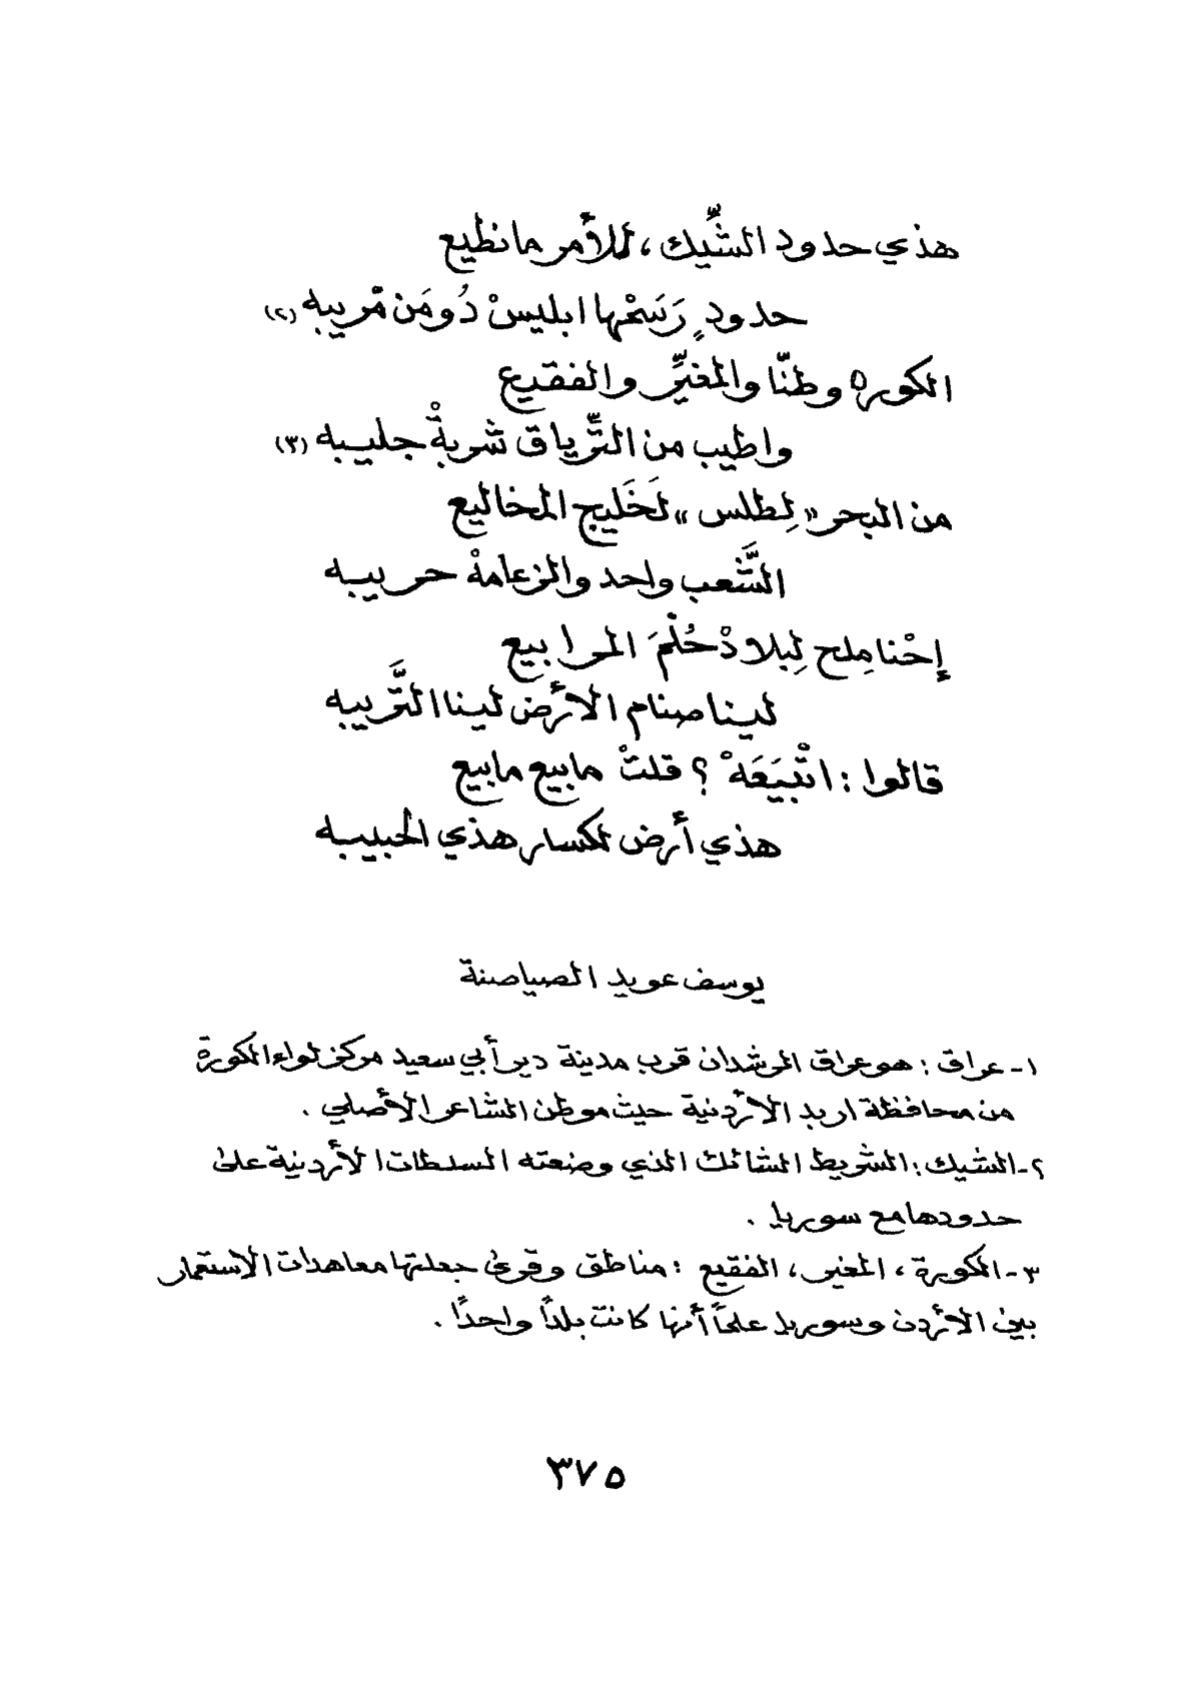 هذي حدود الشِّيك ، للأمر ما نطيع
حدودٍ رَسَمْها ابليسْ دُومَن مْريبه (٢)
الكوره وطنّا والمغيِّر والفقيع
واطيب من التِّرياق شربةْ جليبه (٣)
من البحر « لِطلس » لَخَليج المخاليع
الشَّعب واحد والزعامةْ حريبه
إحْنا مِلح لِبلادْ حُلْمَ المرابيع
لينا صنام الأرض لينا التَّريبه
قالوا : اتْبيَعَهْ ؟ قلتْ مابيع مابيع
هذي أرض لكسار هذي الحبيبه
يوسف عويد الصياصنة
١- عراق : هو عراق الرشدان قرب مدينة دير أبي سعيد مركز لواء الكورة
من محافظة اربد الأردنية حيث موطن الشاعر الأصلي .
٢- الشيك : الشريط الشائك الذي وضعته السلطات الأردنية على
حدودها مع سوريا .
٣- الكورة ، المغير ، الفقيع : مناطق وقرى جعلتها معاهدات الاستعمار
بين الأردن وسوريا علماً أنها كانت بلداً واحداً .
٣٧٥